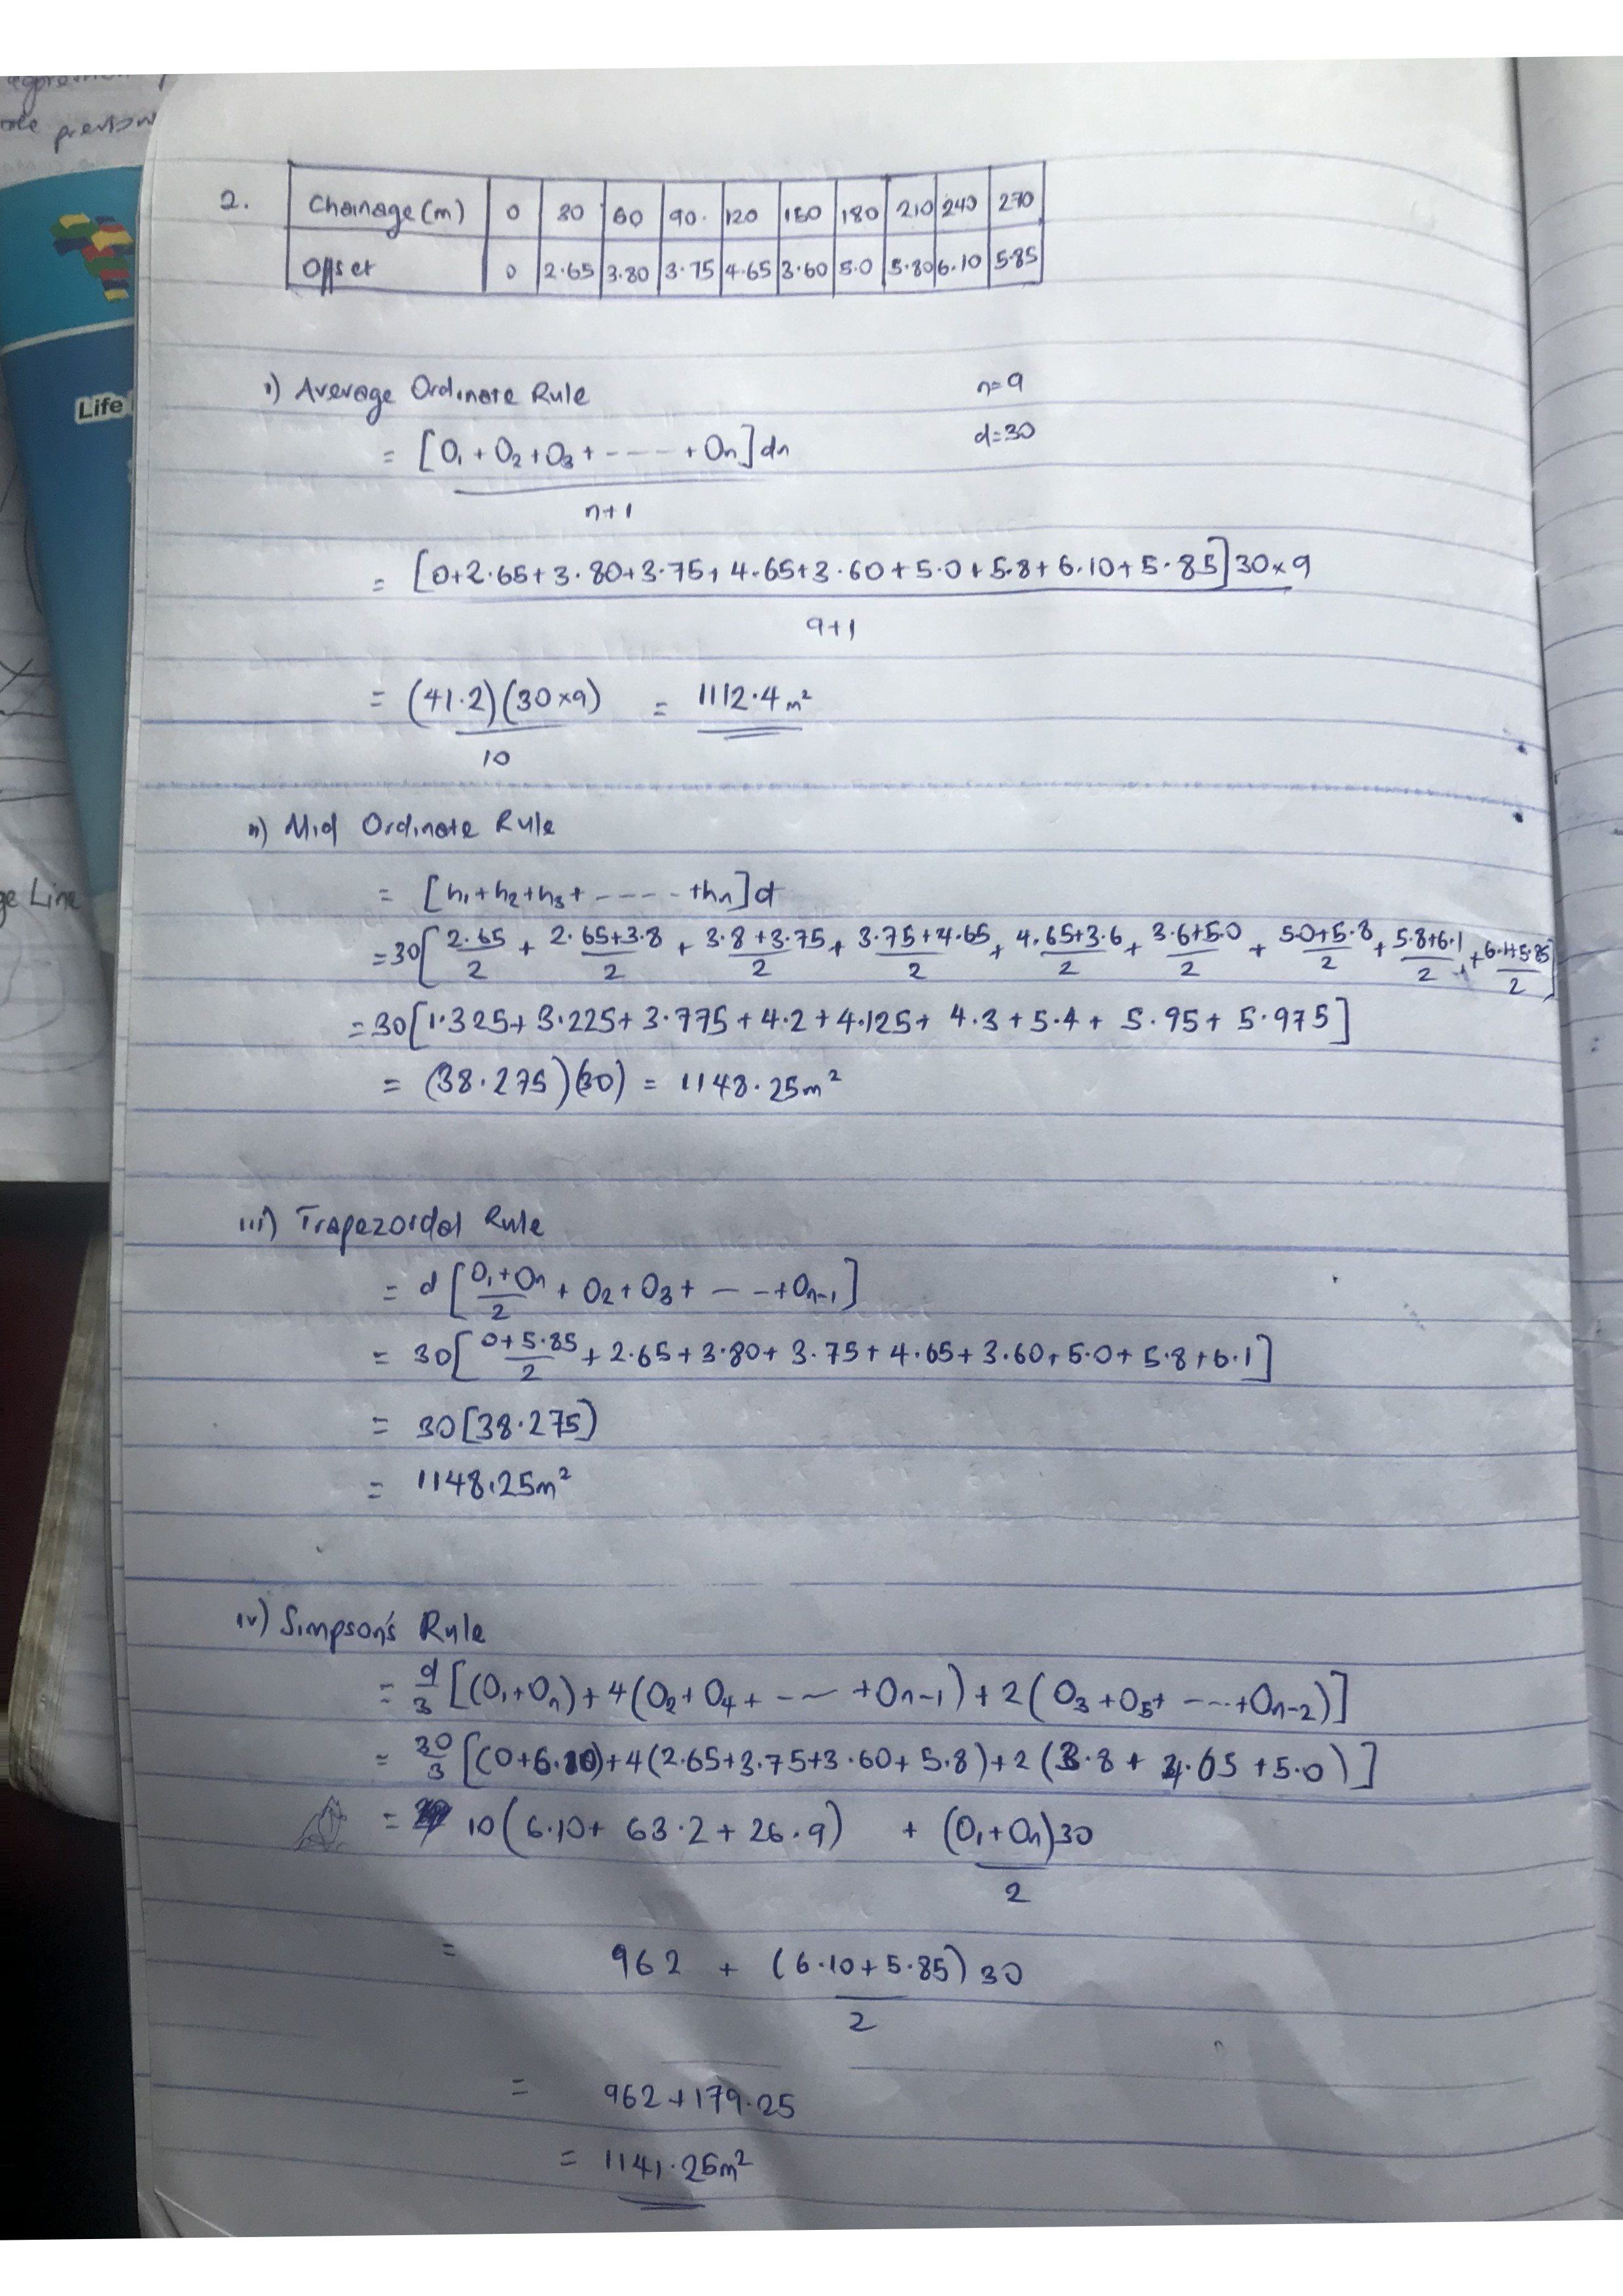 role previous
Life
ge Line
2.
Chainage (m) 0 30 60 90. 120 150 180 210 240 270
Offset 0 2.65 3.80 3.75 4.65 3.60 5.0 5.80 6.10 5.85
i) Average Ordinate Rule n=9
= [O₁ + O₂ + O₃ + ---- + On] dn d=30
n+1
= [0+2.65+3.80+3.75+4.65+3.60+5.0+5.8+6.10+5.85] 30×9
9+1
= (41.2)(30×9) = 1112.4 m²
10
ii) Mid Ordinate Rule
= [h₁+h₂+h₃+ ----- +hn] d
=30[2.65/2 + 2.65+3.8/2 + 3.8+3.75/2 + 3.75+4.65/2 + 4.65+3.6/2 + 3.6+5.0/2 + 5.0+5.8/2 + 5.8+6.1/2 + 6.1+5.85/2]
=30[1.325+3.225+3.775+4.2+4.125+4.3+5.4+5.95+5.975]
= (38.275)(30) = 1148.25m²
iii) Trapezoidal Rule
= d [O₁+On/2 + O₂+O₃+ ---+On-1]
= 30[0+5.85/2 + 2.65+3.80+3.75+4.65+3.60+5.0+5.8+6.1]
= 30[38.275)
= 1148.25m²
iv) Simpson's Rule
= d/3 [(O₁+On)+4(O₂+O₄+ --- +On-1)+2(O₃+O₅+ ---+On-2)]
= 30/3 [(0+6.10)+4(2.65+3.75+3.60+5.8)+2(3.8+4.65+5.0)]
= 10(6.10+ 63.2+26.9) + (O₁+On)30
2
= 962 + (6.10+5.85)30
2
= 962+179.25
= 1141.25m²